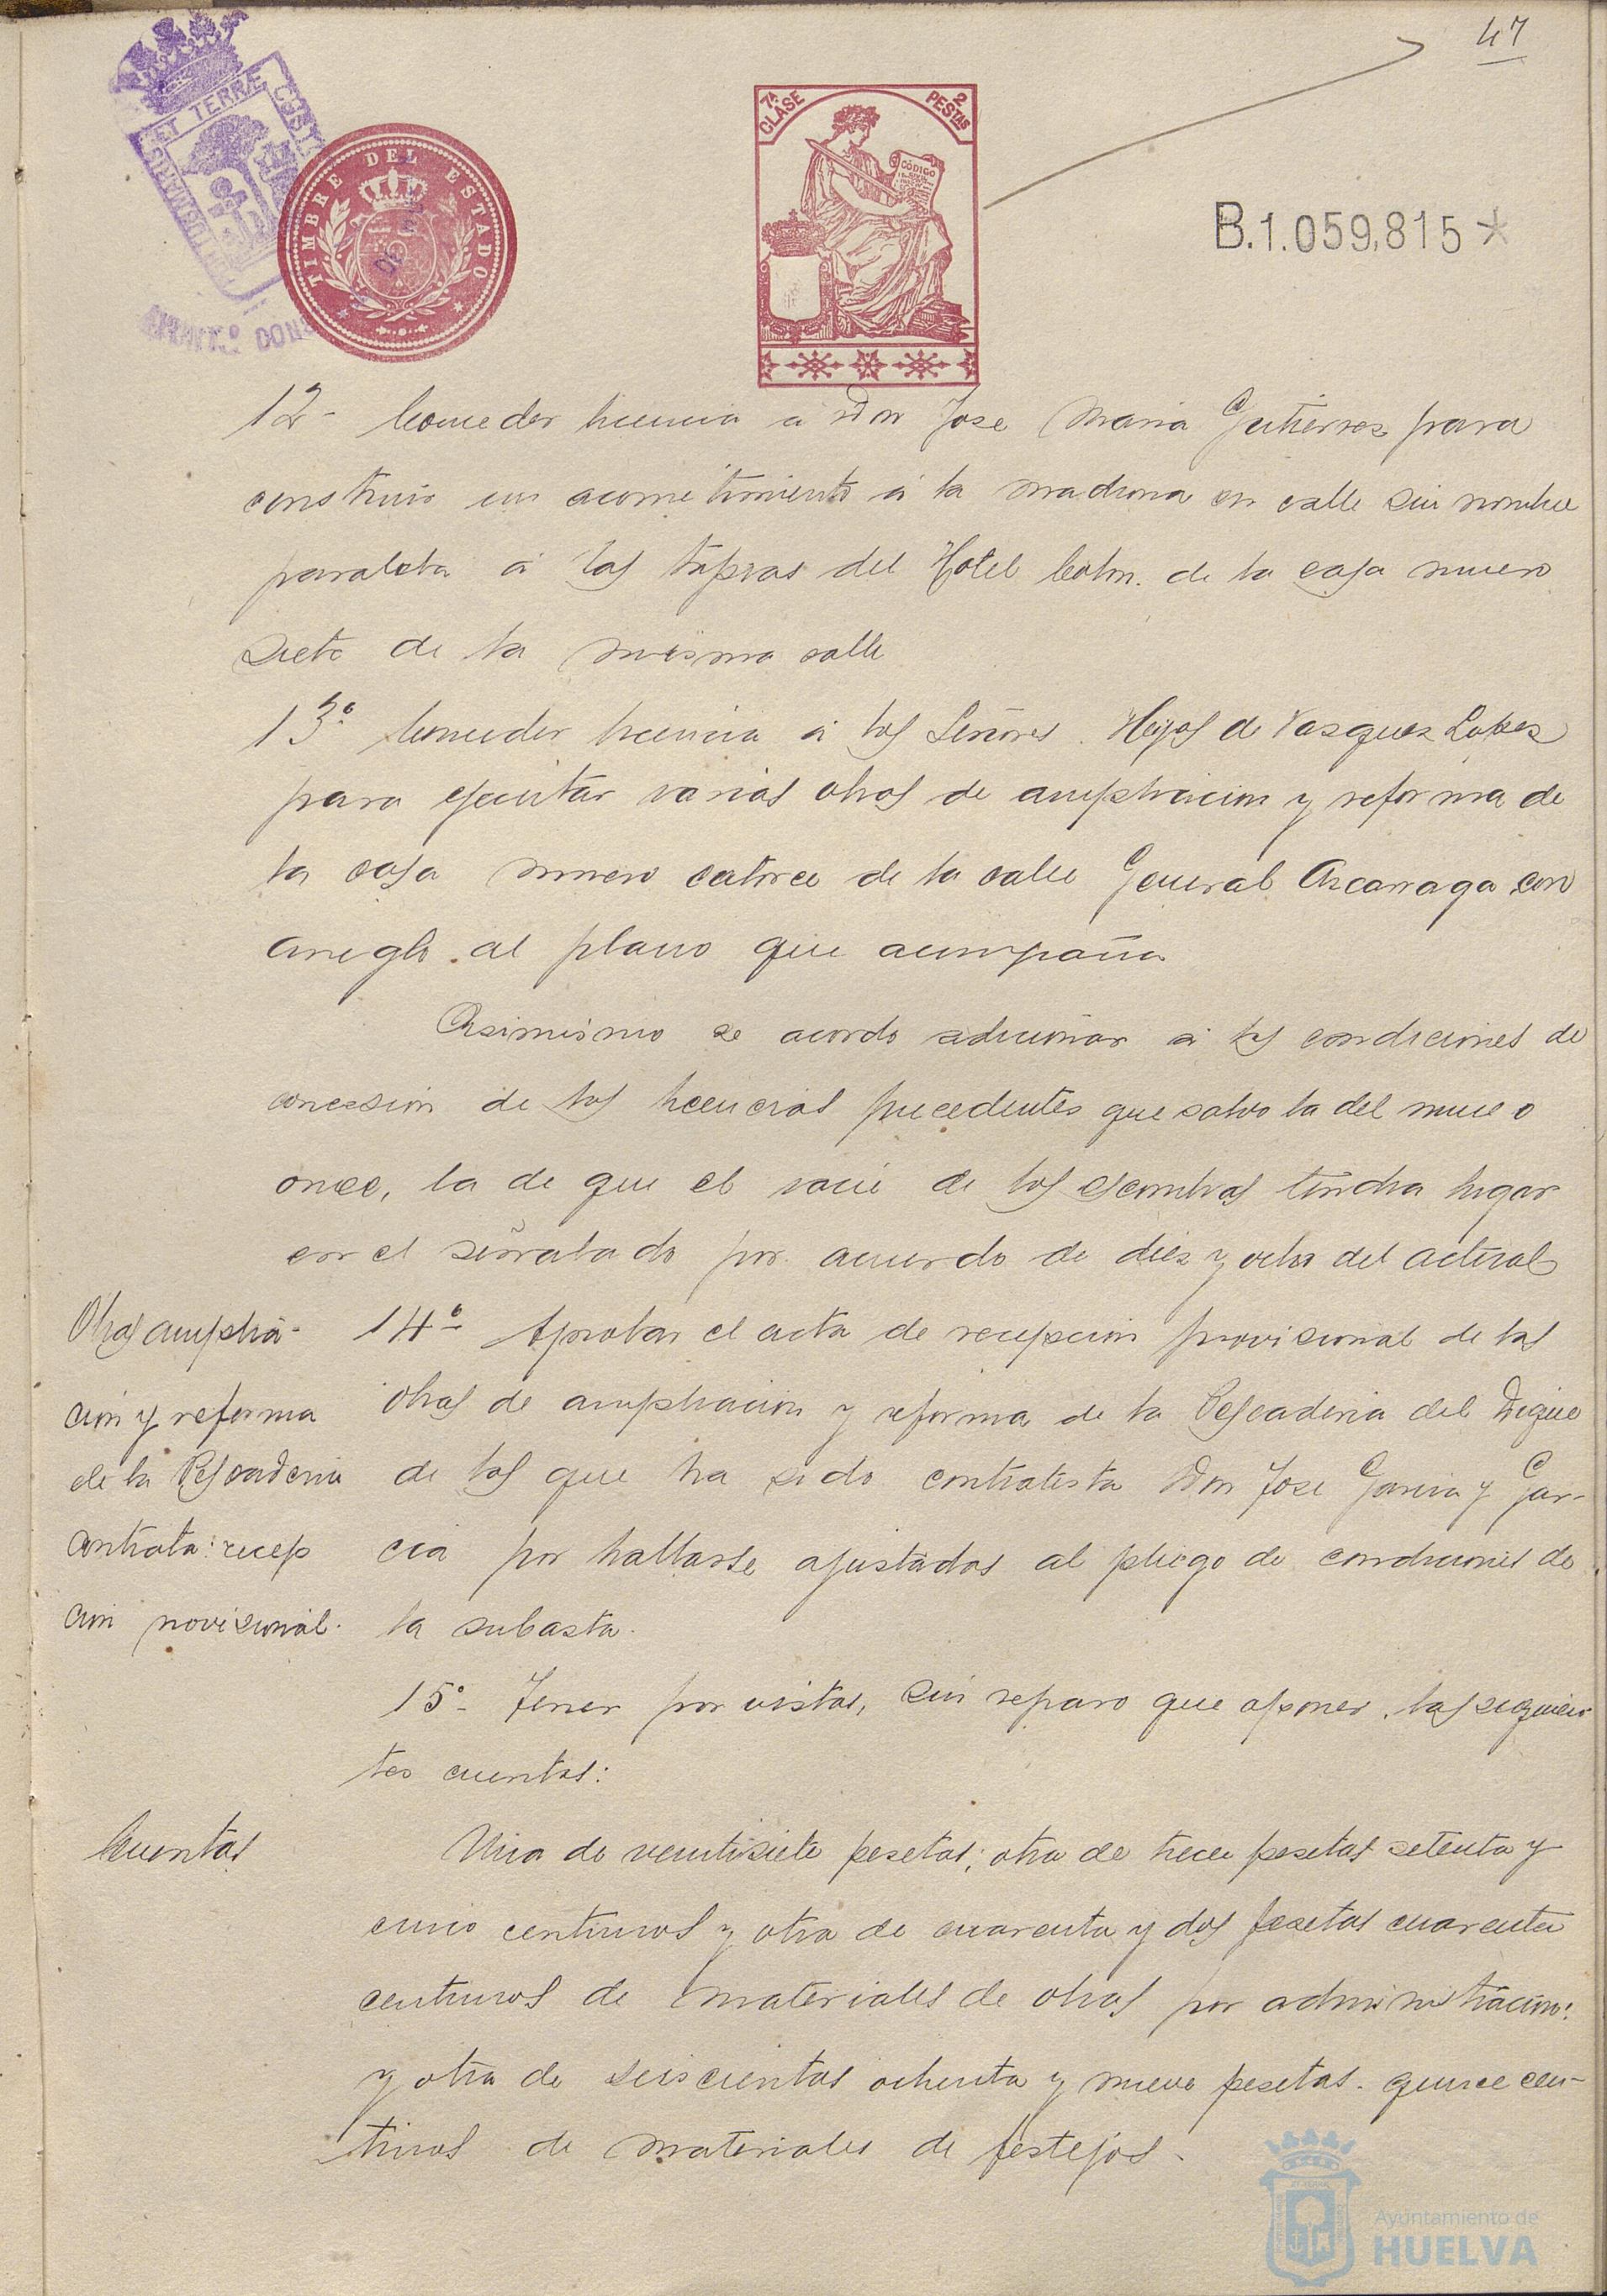 47
ET TERRÆ
TIMBRE DEL ESTADO
7ª CLASE
2 PESTAS
CÓDIGO
B.1.059,815*
12- Conceder licencia a Don Jose Maria Gutierrez para
construir un acometimiento á la madrona en calle sin nombre
paralela á las tapias del Hotel Colon. de la casa numero
siete de la misma calle
13º Conceder licencia á los Señores. Hijos de Vasquez Lopez
para ejecutar varias obras de ampliacion y reforma de
la casa numero catorce de la calle General Azcarraga con
arreglo al plano que acompaña
Asimismo se acordo adicionar á las condiciones de
concesion de las licencias precedentes que salvo la del numero
once, la de que el vacie de los escombros tendra lugar
en el señalado por acuerdo de diez y ocho del actual
Obras amplia-
cion y reforma
de la Pescaderia
contrata: recep
cion provisional.
14º Aprobar el acta de recepcion provisional de las
obras de ampliacion y reforma de la Pescaderia del Dique
de las que ha sido contratista Don Jose Garcia y Gar-
cia por hallarse ajustadas al pliego de condiciones de
la subasta.
15º- Tener por vistas, sin reparo que oponer, las siguien
tes cuentas:
Cuentas
Una de veintisiete pesetas; otra de trece pesetas setenta y
cinco centimos y otra de cuarenta y dos pesetas cuarenta
centimos de materiales de obras por administracion:
y otra de seiscientas ochenta y nueve pesetas. quince cen-
timos de materiales de festejos.
Ayuntamiento de
HUELVA